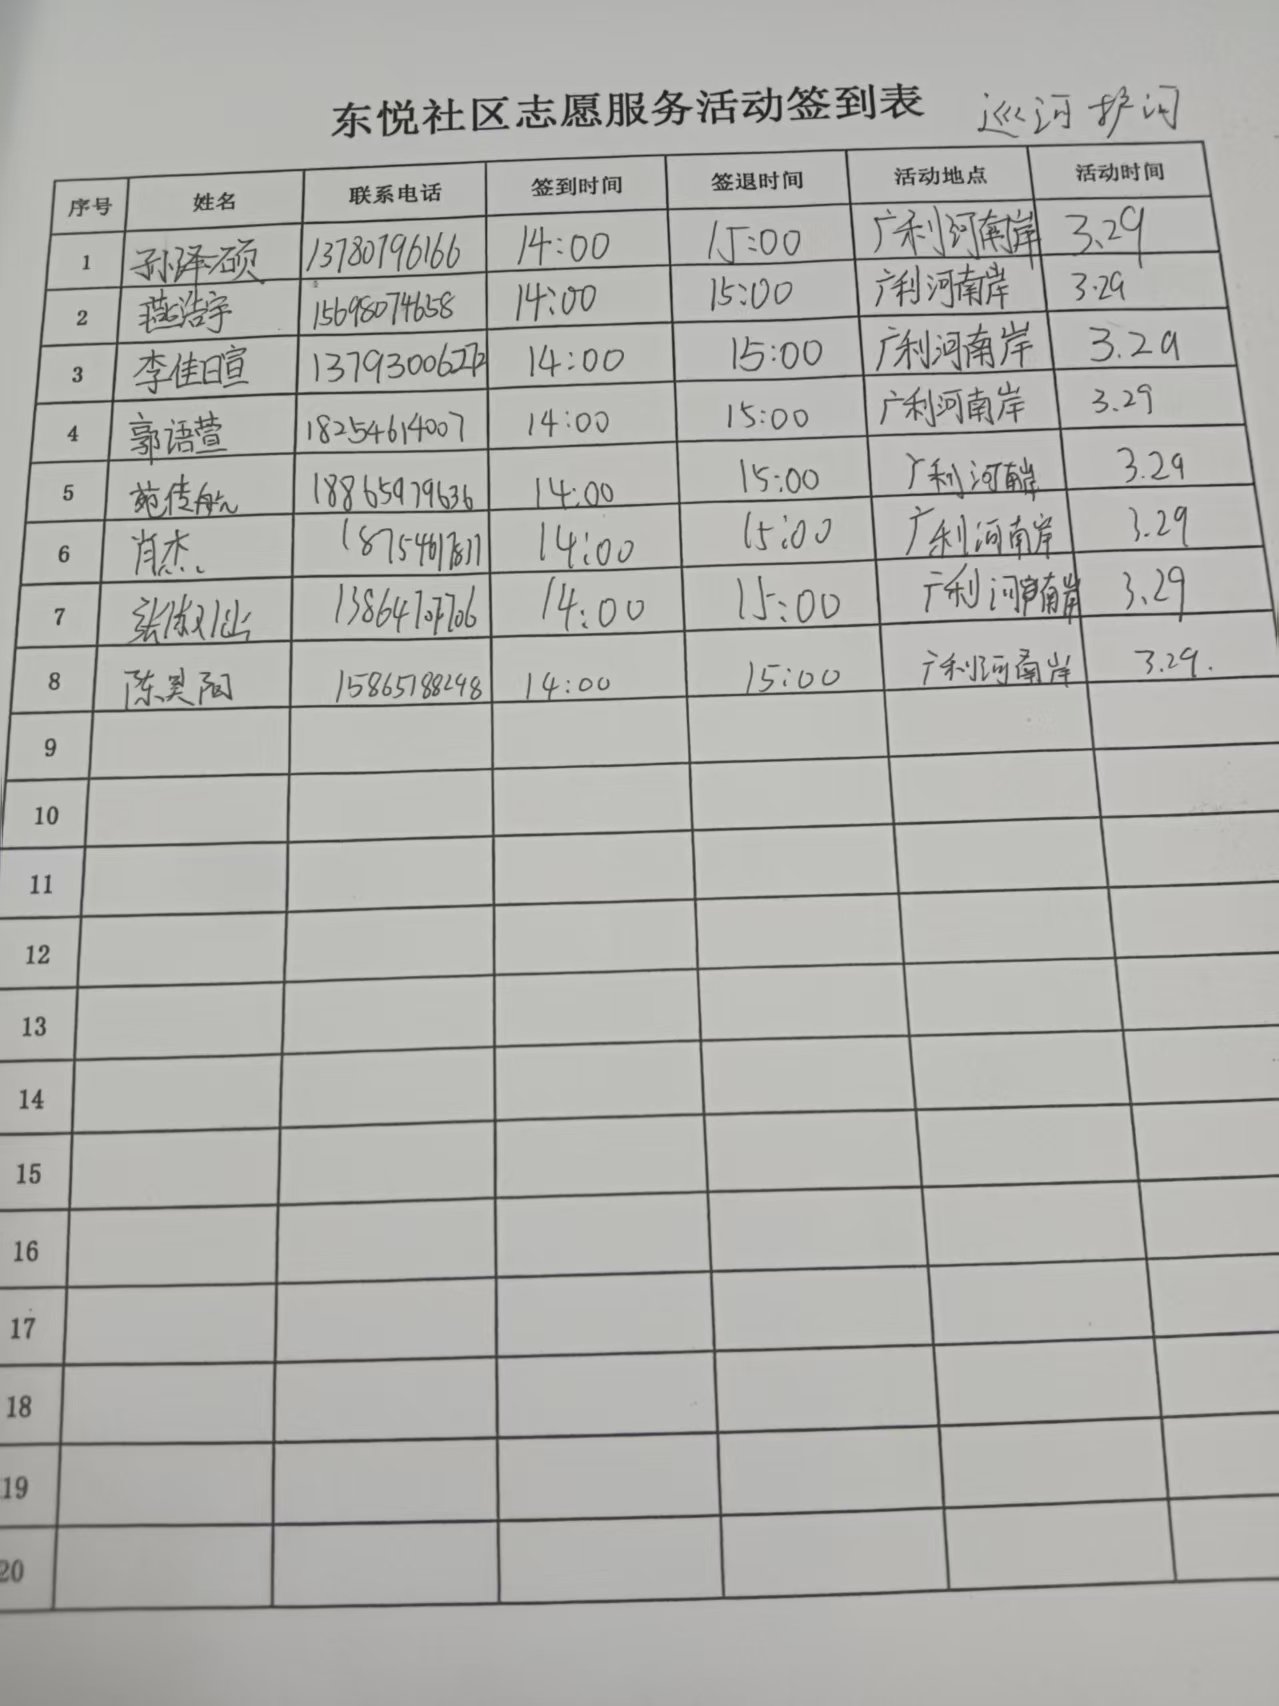 东悦社区志愿服务活动签到表 巡河护河
序号 姓名 联系电话 签到时间 签退时间 活动地点 活动时间
1 孙泽硕 13780796166 14:00 15:00 广利河南岸 3.29
2 燕浩宇 15698074658 14:00 15:00 广利河南岸 3.29
3 李佳暄 13793006272 14:00 15:00 广利河南岸 3.29
4 郭语萱 18254614007 14:00 15:00 广利河南岸 3.29
5 苑传航 18865979636 14:00 15:00 广利河南岸 3.29
6 肖杰 14:00 15:00 广利河南岸 3.29
7 14:00 15:00 广利河南岸 3.29
8 陈昊阳 15865788298 14:00 15:00 广利河南岸 3.29.
9
10
11
12
13
14
15
16
17
18
19
20